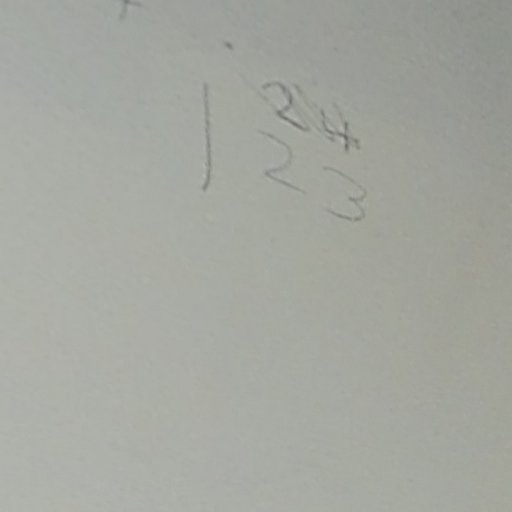 24
1 2 3